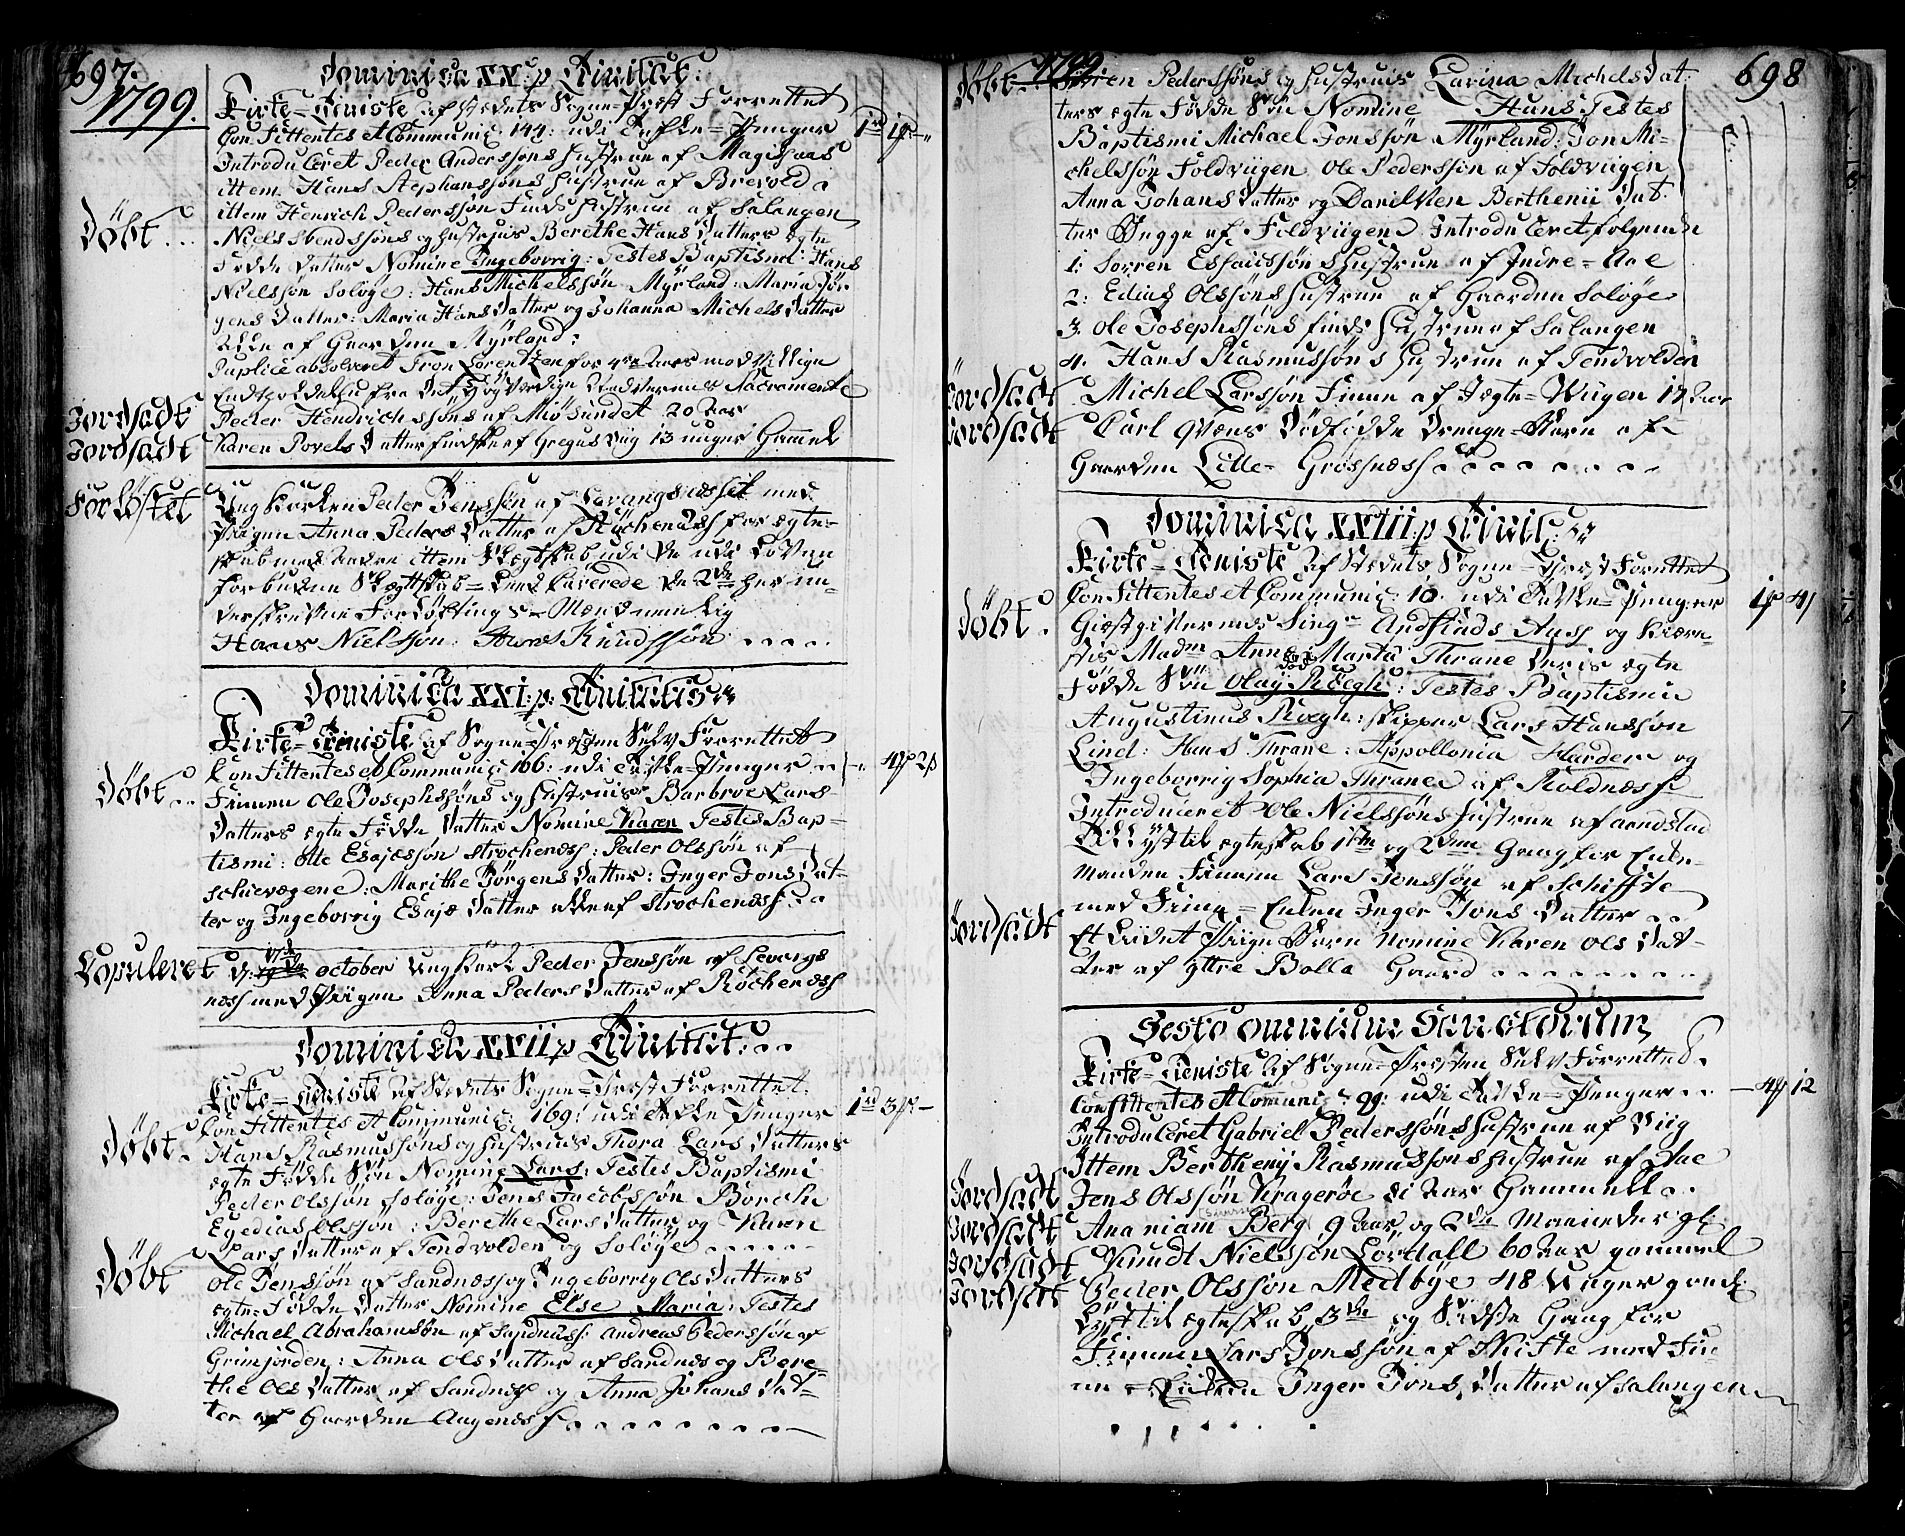 697.
1799.
Dominica XX: p Trinitat:
Kirke=Tieniste af stedets Sogne=Præst Forrettet
Confittentes et Communic: 144: udi Tafle=Penger 1rd 1
Introduceret Peder Anderssøns Hustrue af Magisaas
ittem Hans Stephanssøns Hustrue af Brevold
ittem Henrich Pederssøn Finds Hustrue af Salangen
Døbt..
Niels Svendssøns og Hustrues Berethe Hans Datters egte
Fødde Datter Nomine Ingeborrig: Testes Baptismi: Hans
Nielssøn Soløye: Hans Michelssøn Myrland: Maria Jør
gens Datter: Maria Hans Datter og Johanna Michels Datter
alle af Gaarden Myrland:
Publice absolveret Tron Lorentzen for
fra Det Sacramente
Jordfæst
Peder Hendrichssøns af Miøsundet 20 aar
Jordfæst
Karen Povels Datter Findske af Gregusviig 13 uuger Gammel
Forløftet
Ung Karlen Peder Jenssøn af Lovangsnæsset med
Piigen Anna Peders Datter af Røchenæss for egte=
skab med anden ittem Slegtskab udi de udi Loven
forbudne Slægtskab= Leed Caverede de 2de her un=
derskrevne Forløftnings=Mænd nemlig
Hans Nielssøn: Hans Knudssøn ....
Dominica XXI: p: Trinitatis
Kirke=Tieniste af Sogne=Præsten Selv Forrettet
Confittentes et Communic: 166: udi Tafle=Penger .. - 4 2
Døbt..
Finnen Ole Josephssøns og Hustrues Barbroe Lars
Datters egte Fødde Datter Nomine Karen Testes Bap=
tismi: Olle Esajessøn Strochenæss: Peder Olssøn af
Schievægene: Marithe Jørgens Datter: Inger Jons Dat=
ter og Ingeborrig Esajæ Datter alle af Strochenæss
Copuleret
d: 17de october Ung Karl Peder Jenssøn af Levangs
næss med Piigen Anna Peders Datter af Røchenæss
Dominica XXII p Trinitat:..
Kirke=Tieniste af Stedets Sogne=Præst Forrettet.
Confittentes et Communic: 169: udi Tafle Penger 1rd 3 -
Døbt.
Hans Rasmussøns og Hustrues Thora Lars Datters
egte Fødde Søn Nomine Lars: Testes Baptismi
Peder Olssøn Soløye: Jens Jacobssøn Borchi
Egedias Olssøn: Berethe Lars Datter og Karen
Lars Datter af Tendvolden og Soløye .....
Døbt
Ole Jenssøn af Sandnæss og Ingeborrig Ols Datters
egte=Fødde Datter Nomine Else Maria: Testes
Michael Abrahamsøn af Sandnæss: Andreas Pederssøn af
Grimjorden: Anna Ols Datter af Sandnæs og Bere=
the Ols Datter af Sandnæs og Anna Johans Dat=
ter af Gaarden Aagenæss
698
1799
Døbt..
Søren Pederssøns og Hustrues Carina Michels Dat:
ters egte Fødde Søn Nomine Hans: Testes
Baptismi Michael Jonssøn Myrland: Jon Mi=
chelssøn Foldviigen Ole Pederssøn af Foldviigen
Anna Johans Datter og Danilken Berthenii Dat
ter Bygge af Foldviigen Introduceret følgende
1: Sørren Essaiassøns Hustrue af Indre=Aae
2: Edias Olssøns Hustrue af Gaarden Soløye
3. Ole Josephssøns finds Hustrue af Salangen
4. Hans Rasmussøns Hustrue af Tendvolden
Jordfæst
Michel Larssøn Finne af Jægte=Wiigen 17 aar
Jordfæst
Carl Qvæns Dødfødde Drenge=Barn af
Gaarden Lille=Grosnæss.......
Dominica XXIII: p Trinit:
Kirke=Tieniste af Stedets Sogne=Præst Forrettet
Confittentes et Communic: 10: udi Tafle=Penger 1 4
Døbt.
Giæstgifverens Sing: Andfinds Aass og Kiære=
stis Madm Anne Marta Thrane Deris egte
Fødde Søn Olay Røegh: Testes Baptismi
Augustinus Røegh: skipper Lars Hanssøn
Lind: Hans Thrane: Appollonia Harder og
Ingeborrig Sophia Thrane af Roldnæss
Introduceret Ole Nielssøns Hustrue af arndstad
Lyst til egteskab 1ste og 2den Gang for Enke=
manden Finnen Lars Jonssøn af Schiffte
med Finne=Enken Inger Jons Datter ..
Jordfæst
Et Liidet Piige Barn Nomine Karen Ols Dat=
ter af yttre Bolla Gaard .......
Festo omnium Sanctorum
Kirke=Tieniste af Sogne=Præsten Selv Forrettet.
Confittentes et Comuni: 99: udi Tafle=Penger .. - 4 12
Introduceret Gabriel Pederssøns Hustrue af Viig
Ittem Bertheny Rasmussøns Hustrue af Aae
Jordfæst
Jens Olssøn Kragerøe 61 aar Gammell ..
Jordfæst
Ananiam Berg 9 aar og 2de Maaneder gl:
Jordfæst
Knudt Nielssøn Lørdall 60 aar gammel
Jordfæst
Peder Olssøn Medbye 48 Uuger gaml:
Lyst til egteskab 3die og Sidste Gang for
Finnen Lars Jonssøn af Skifte med Fin
ne=Enken Inger Jons Datter af Salangen